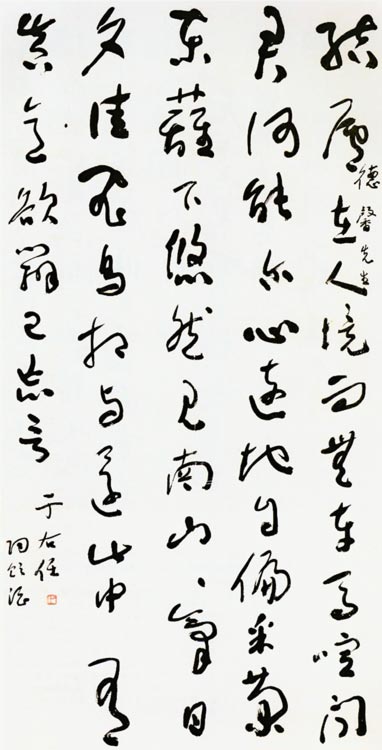 結廬在人境而無車馬喧問
德馨先生
君何能爾心遠地自偏采菊
東籬下悠然見南山、氣日
夕佳飛鳥相與還此中有
真意欲辯已忘言
于右任
陶飲酒